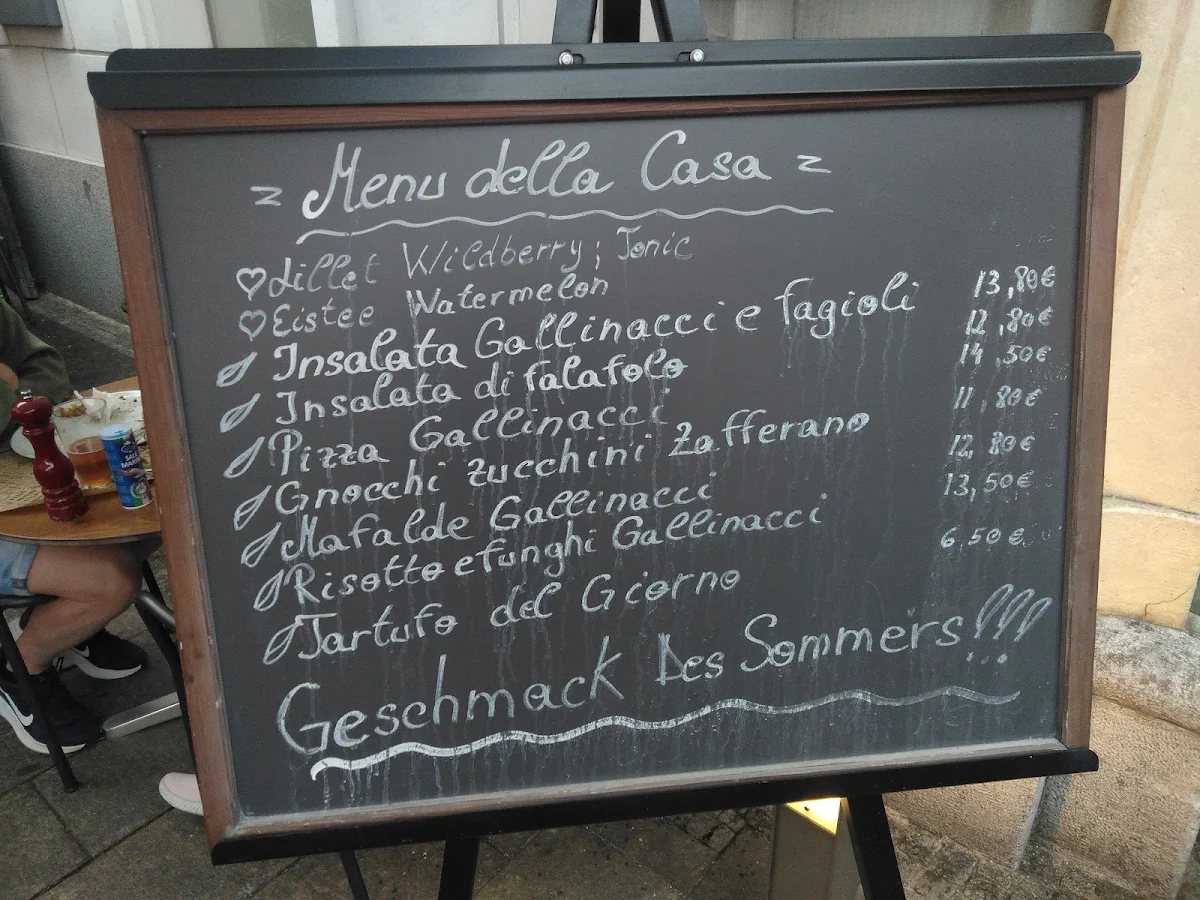 Menu della Casa
Lillet Wildberry; Tonic
Eistee Watermelon
Insalata Gallinacci e fagioli 13,80€
Insalata di falafolo 12,80€
Pizza Gallinacci 14,50€
Gnocchi Zucchini Zafferano 11,80€
Mafalde Gallinacci 12,80€
Risotto e funghi Gallinacci 13,50€
Tartufo del Giorno 6,50€
Geschmack Des Sommers!!!